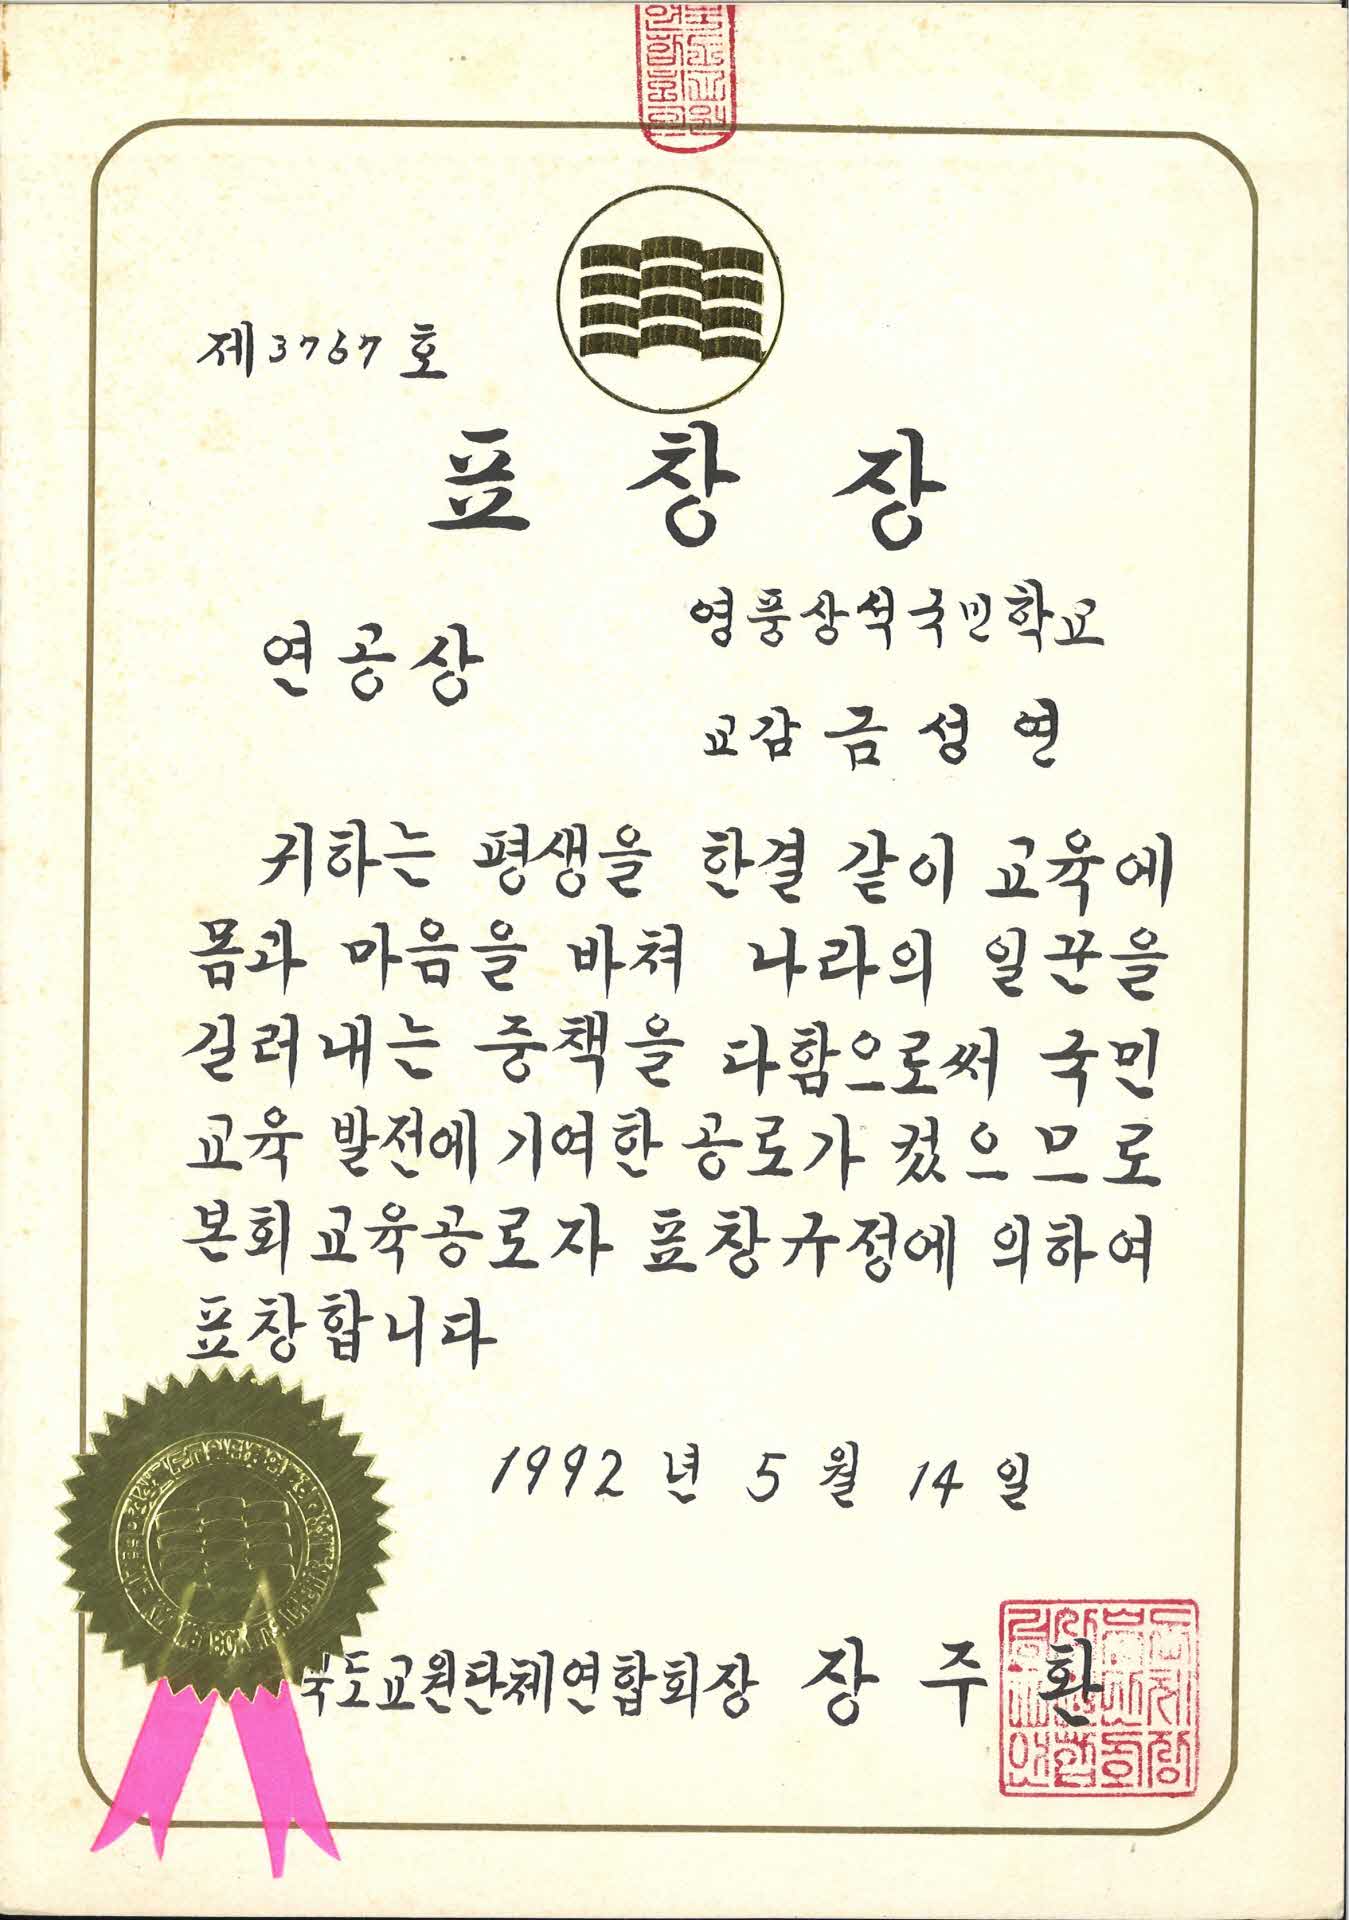 제3767호
표창장
연공상
영풍상석국민학교
교감 금성연
귀하는 평생을 한결 같이 교육에
몸과 마음을 바쳐 나라의 일꾼을
길러내는 중책을 다함으로써 국민
교육 발전에 기여한 공로가 컸으므로
본회 교육공로자 표창규정에 의하여
표창합니다
1992년 5월 14일
북도교원단체연합회장 장주환